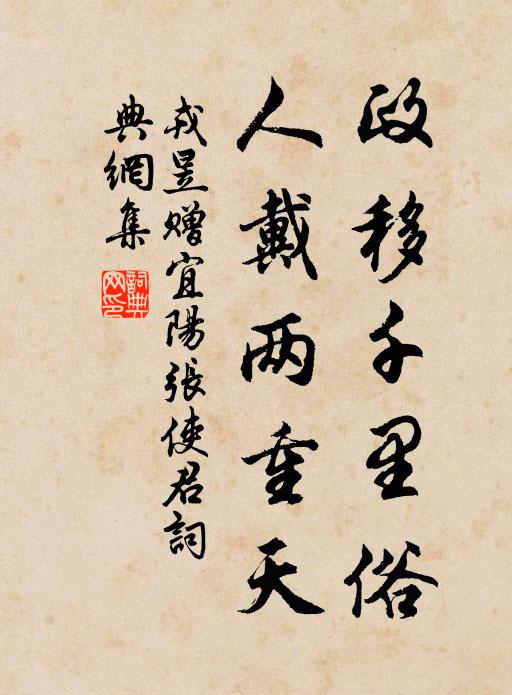 政移千里俗
人戴两重天
戎昱赠宜陽張使君詞
典網集
詞典网印